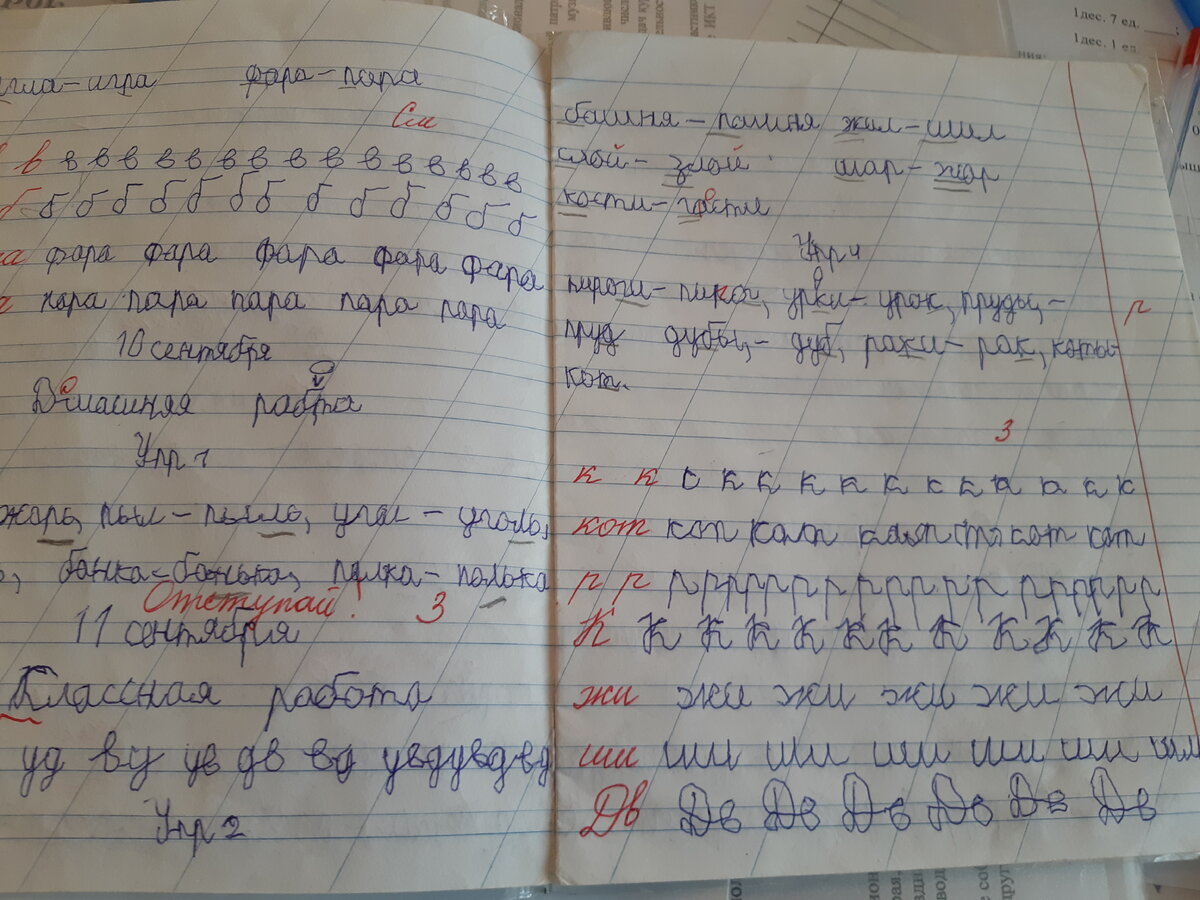 игра фара-пара
См
в в в в в в в в в в в в в в в
б б б б б б б б б б б б б
фара фара фара фара фара
пара пара пара пара пара
10 сентября
Домашняя работа
Упр 1
жарь, пыл-пыль, угол-уголь,
банка-банька, полка-полька
Отступай! 3
11 сентября
Классная работа
уд ву ув дв вд увдувдвд
Упр 2
башня-пашня жил-шил
слой-злой шар-жар
кости-гости
Упр 4
пироги-пирог, урки-урок, пруды-
пруд дубы,-дуб, ражи-рак, коты-
кот.
р
3
к к с к к к к к к к к к к к
кот кот кот кот кот кот
р р р р р р р р р р р р р р р р р р
К К К К К К К К К К К
жи жи жи жи жи жи
ши ши ши ши ши ши ши
Дв Дв Дв Дв Дв Дв Дв
1дес. 7 ед.
1дес. 1 ед.